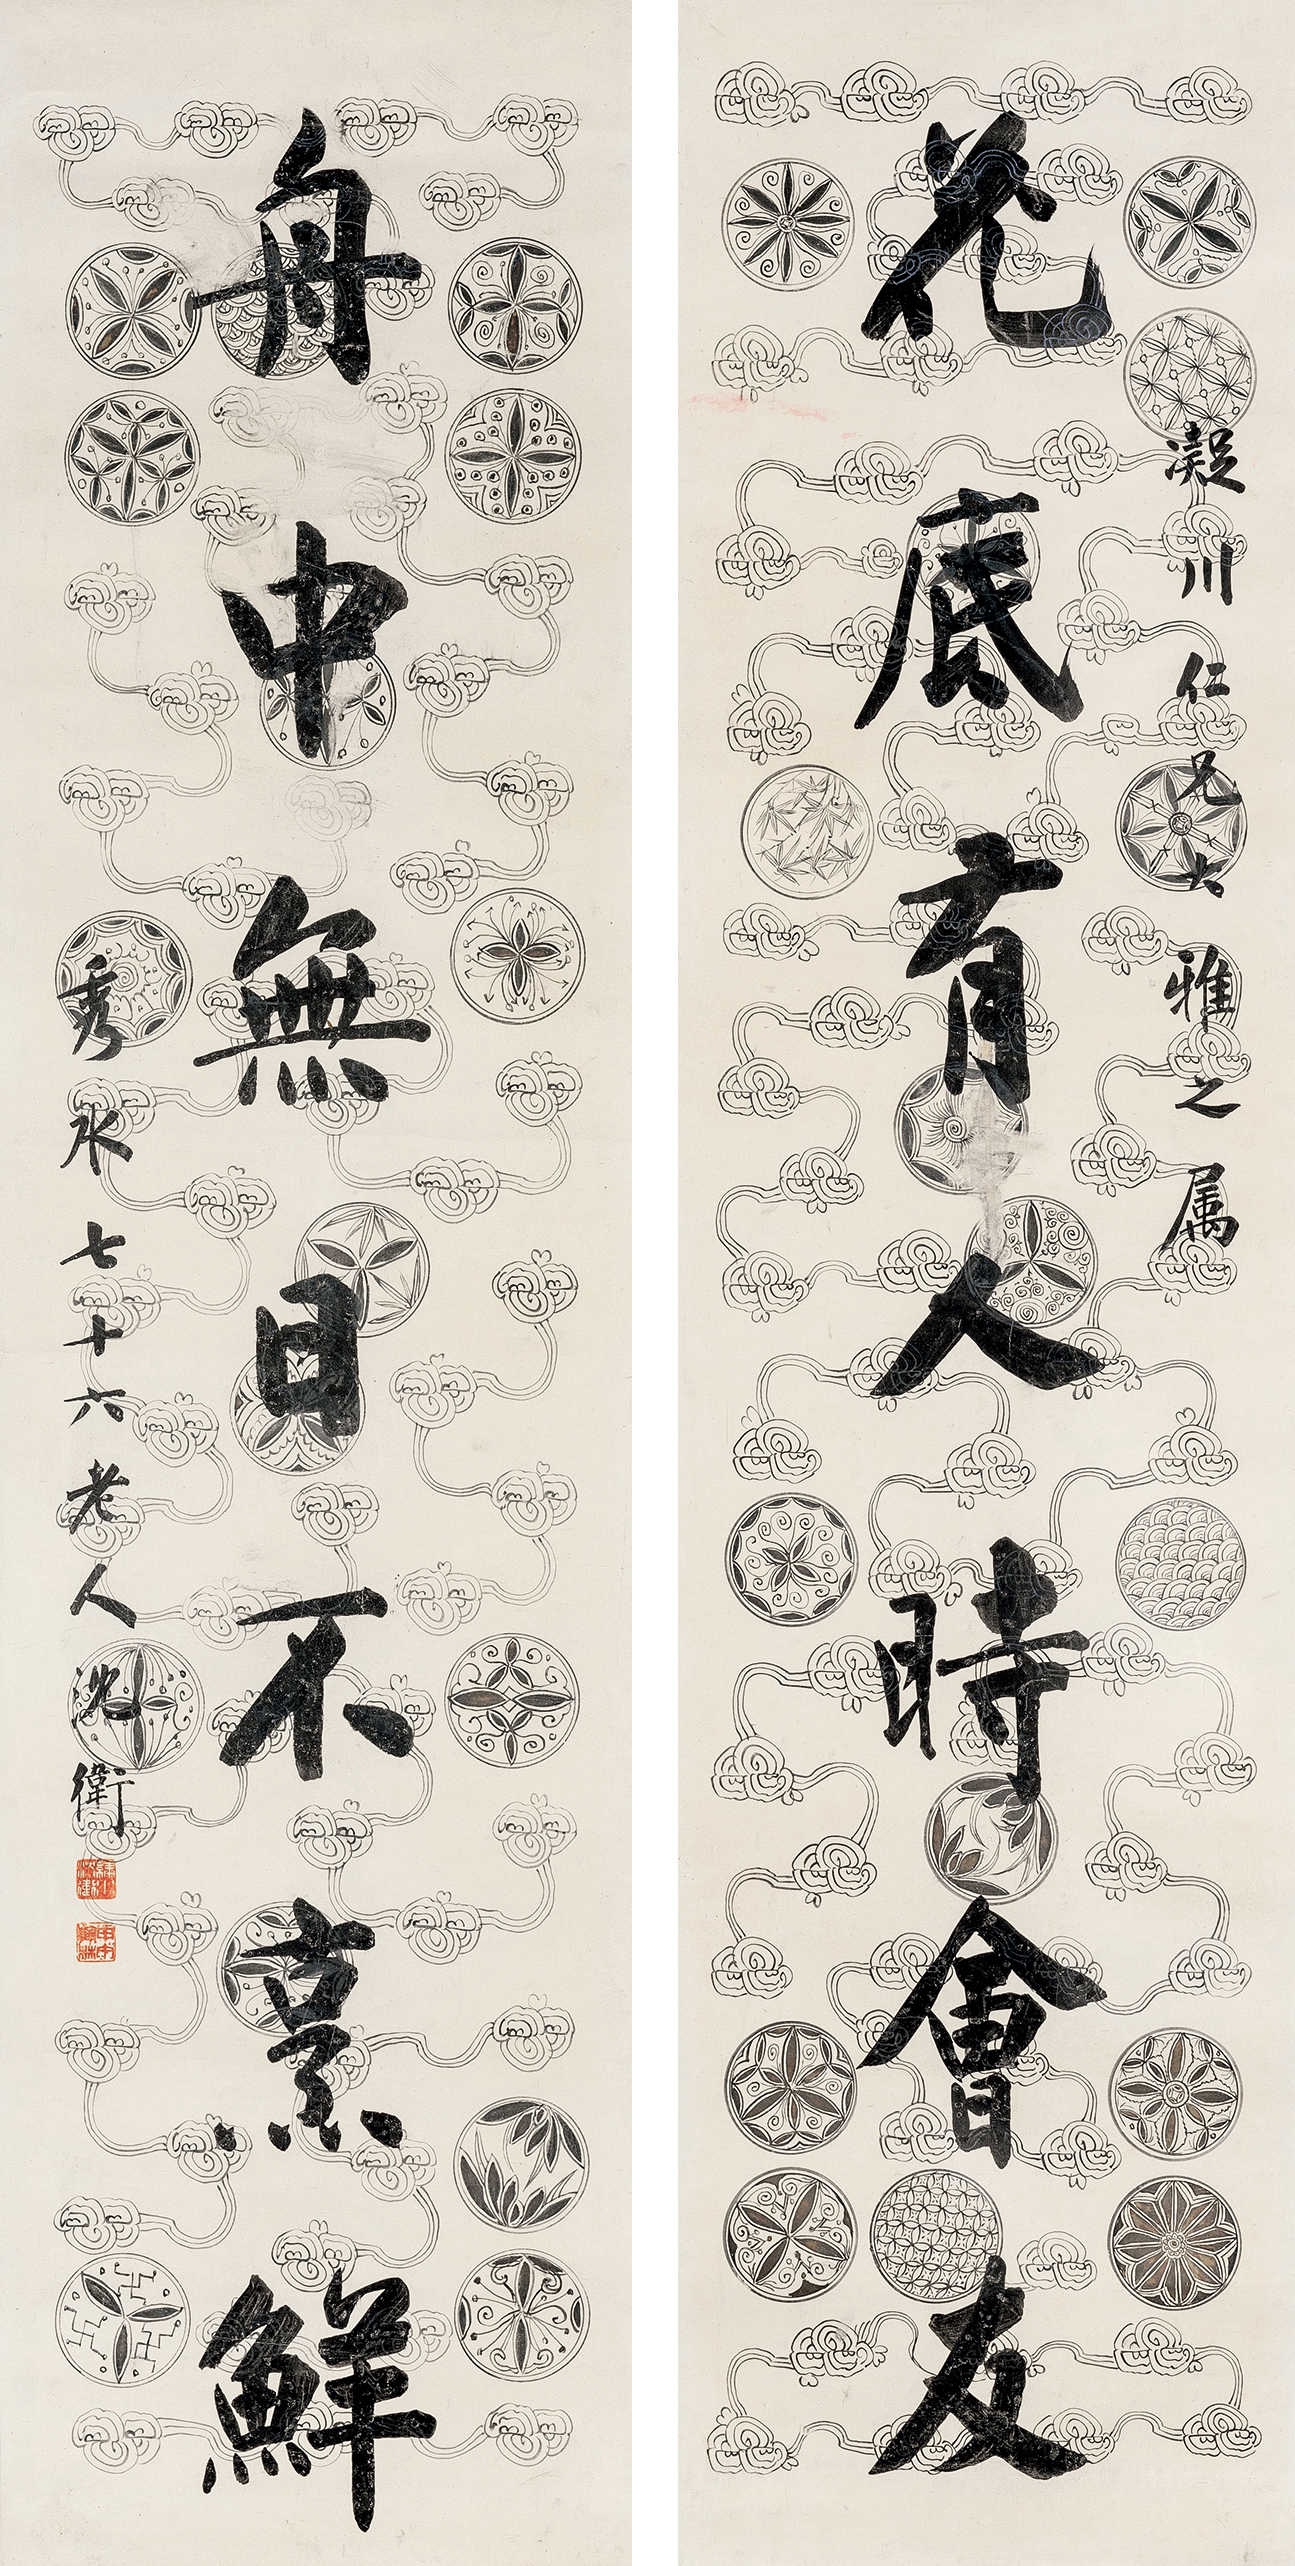 凝川仁兄大雅之属
花底有人時會友
舟中無日不烹鮮
秀水七十六老人沈衛